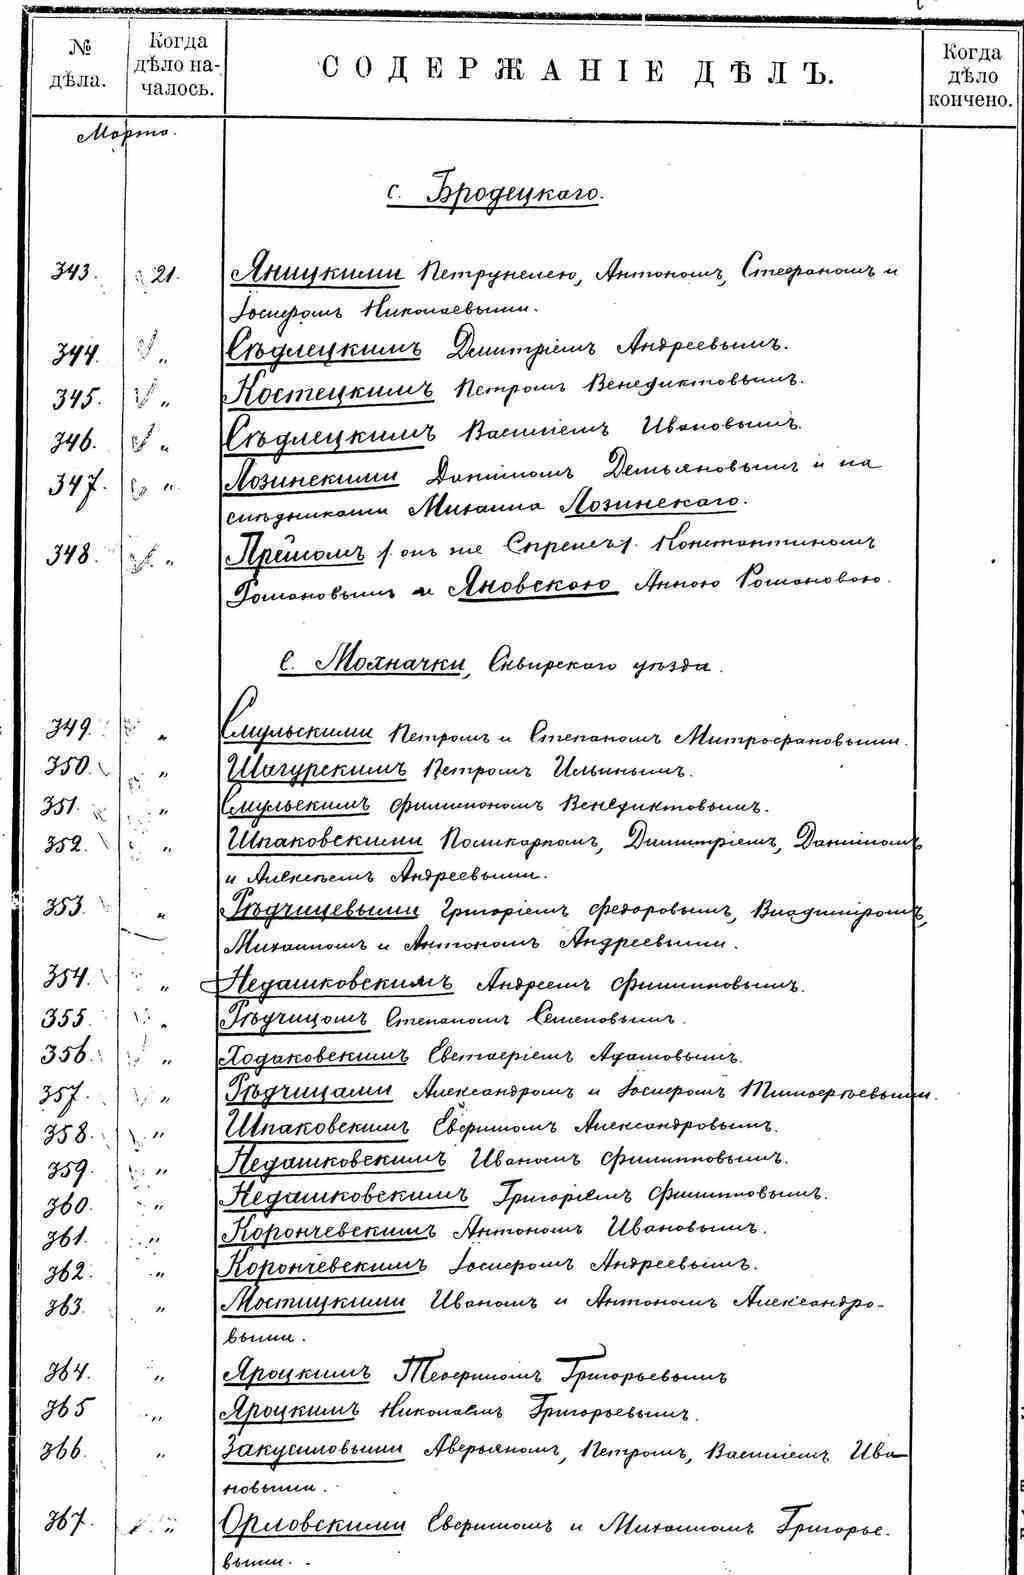 № дѣла.
Когда дѣло началось.
СОДЕРЖАНІЕ ДѢЛЪ.
Когда дѣло кончено.
Марта.
с. Бродецкаго.
343. 21. Яницкими Петрунелею, Антономъ, Стефаномъ и
Іосифомъ Николаевыми.
344. „ Сѣдлецкимъ Димитріемъ Андреевымъ.
345. „ Костецкимъ Петромъ Венедиктовымъ.
346. „ Сѣдлецкимъ Василіемъ Ивановымъ.
347. „ Лозинскими Даніиломъ Демьяновымъ и на
слѣдниками Михаила Лозинскаго.
348. „ онъ же Константиномъ
Романовымъ и Яновскою Анною Романовою.
С. Молначки, Сквирскаго уѣзда.
349. „ Смульскими Петромъ и Степаномъ Митрофановыми.
350. „ Шагурскимъ Петромъ Ильинымъ.
351. „ Смульскимъ Филимономъ Венедиктовымъ.
352. „ Шпаковскими Поликарпомъ, Димитріемъ, Даніиломъ
и Алексѣемъ Андреевыми.
353. „ Рѣдчицевыми Григоріемъ Федоровымъ, Владиміромъ,
Михаиломъ и Антономъ Андреевыми.
354. „ Недашковскимъ Андреемъ Филипповымъ.
355. „ Рѣдчицомъ Степаномъ Семеновымъ.
356. „ Ходаковскимъ Адамовымъ.
357. „ Рѣдчицами Александромъ и Іосифомъ Тимофѣевыми.
358. „ Шпаковскимъ Евфимомъ Александровымъ.
359. „ Недашковскимъ Иваномъ Филипповымъ.
360. „ Недашковскимъ Григоріемъ Филипповымъ.
361. „ Корончевскимъ Антономъ Ивановымъ.
362. „ Корончевскимъ Іосифомъ Андреевымъ.
363. „ Мостицкими Иваномъ и Антономъ Александро-
выми.
364. „ Яроцкимъ Теофиломъ Григорьевымъ
365 „ Яроцкимъ Николаемъ Григорьевымъ.
366. „ Закусиловыми Аверьяномъ, Петромъ, Василіемъ Ива
новыми.
367. „ Орловскими Евфимомъ и Михаиломъ Григорье-
выми.